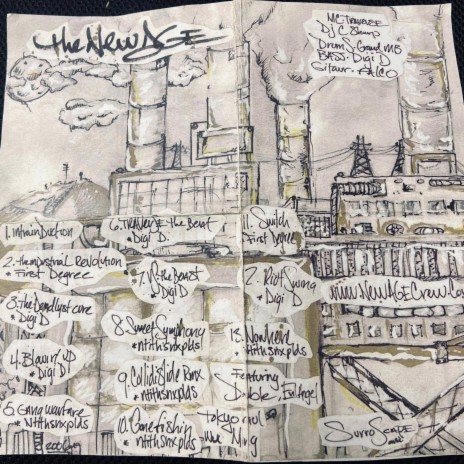 the New AGE
MC-Traverse
DJ C Skump
Drums-Grand MB
BASS-Digi D
Gitaur-FALCO
1. intrainDuction
2. theindustrial Revolution
* First Degree
3. the Deadlyst cure
* Digi D
4. Blowin' up
* Digi D
5. Gang warfare
* Nthhsnxplds
6. TRAVERSE-the Beat
* Digi D.
7. N-the Beast
* Digi D
8. Sweet Symphony
* nthhsnxplds
9. Collidislide Rmx
* nthhsnxplds
10. Gone fishin
* nthhsnxplds
11. Switch
First Degree
2. Riot Swing
* Digi D
13. Nowhere
* nthhsnxplds
Featuring
Double, Evil Angel
Tokyo
www.NewAGECrew.Co